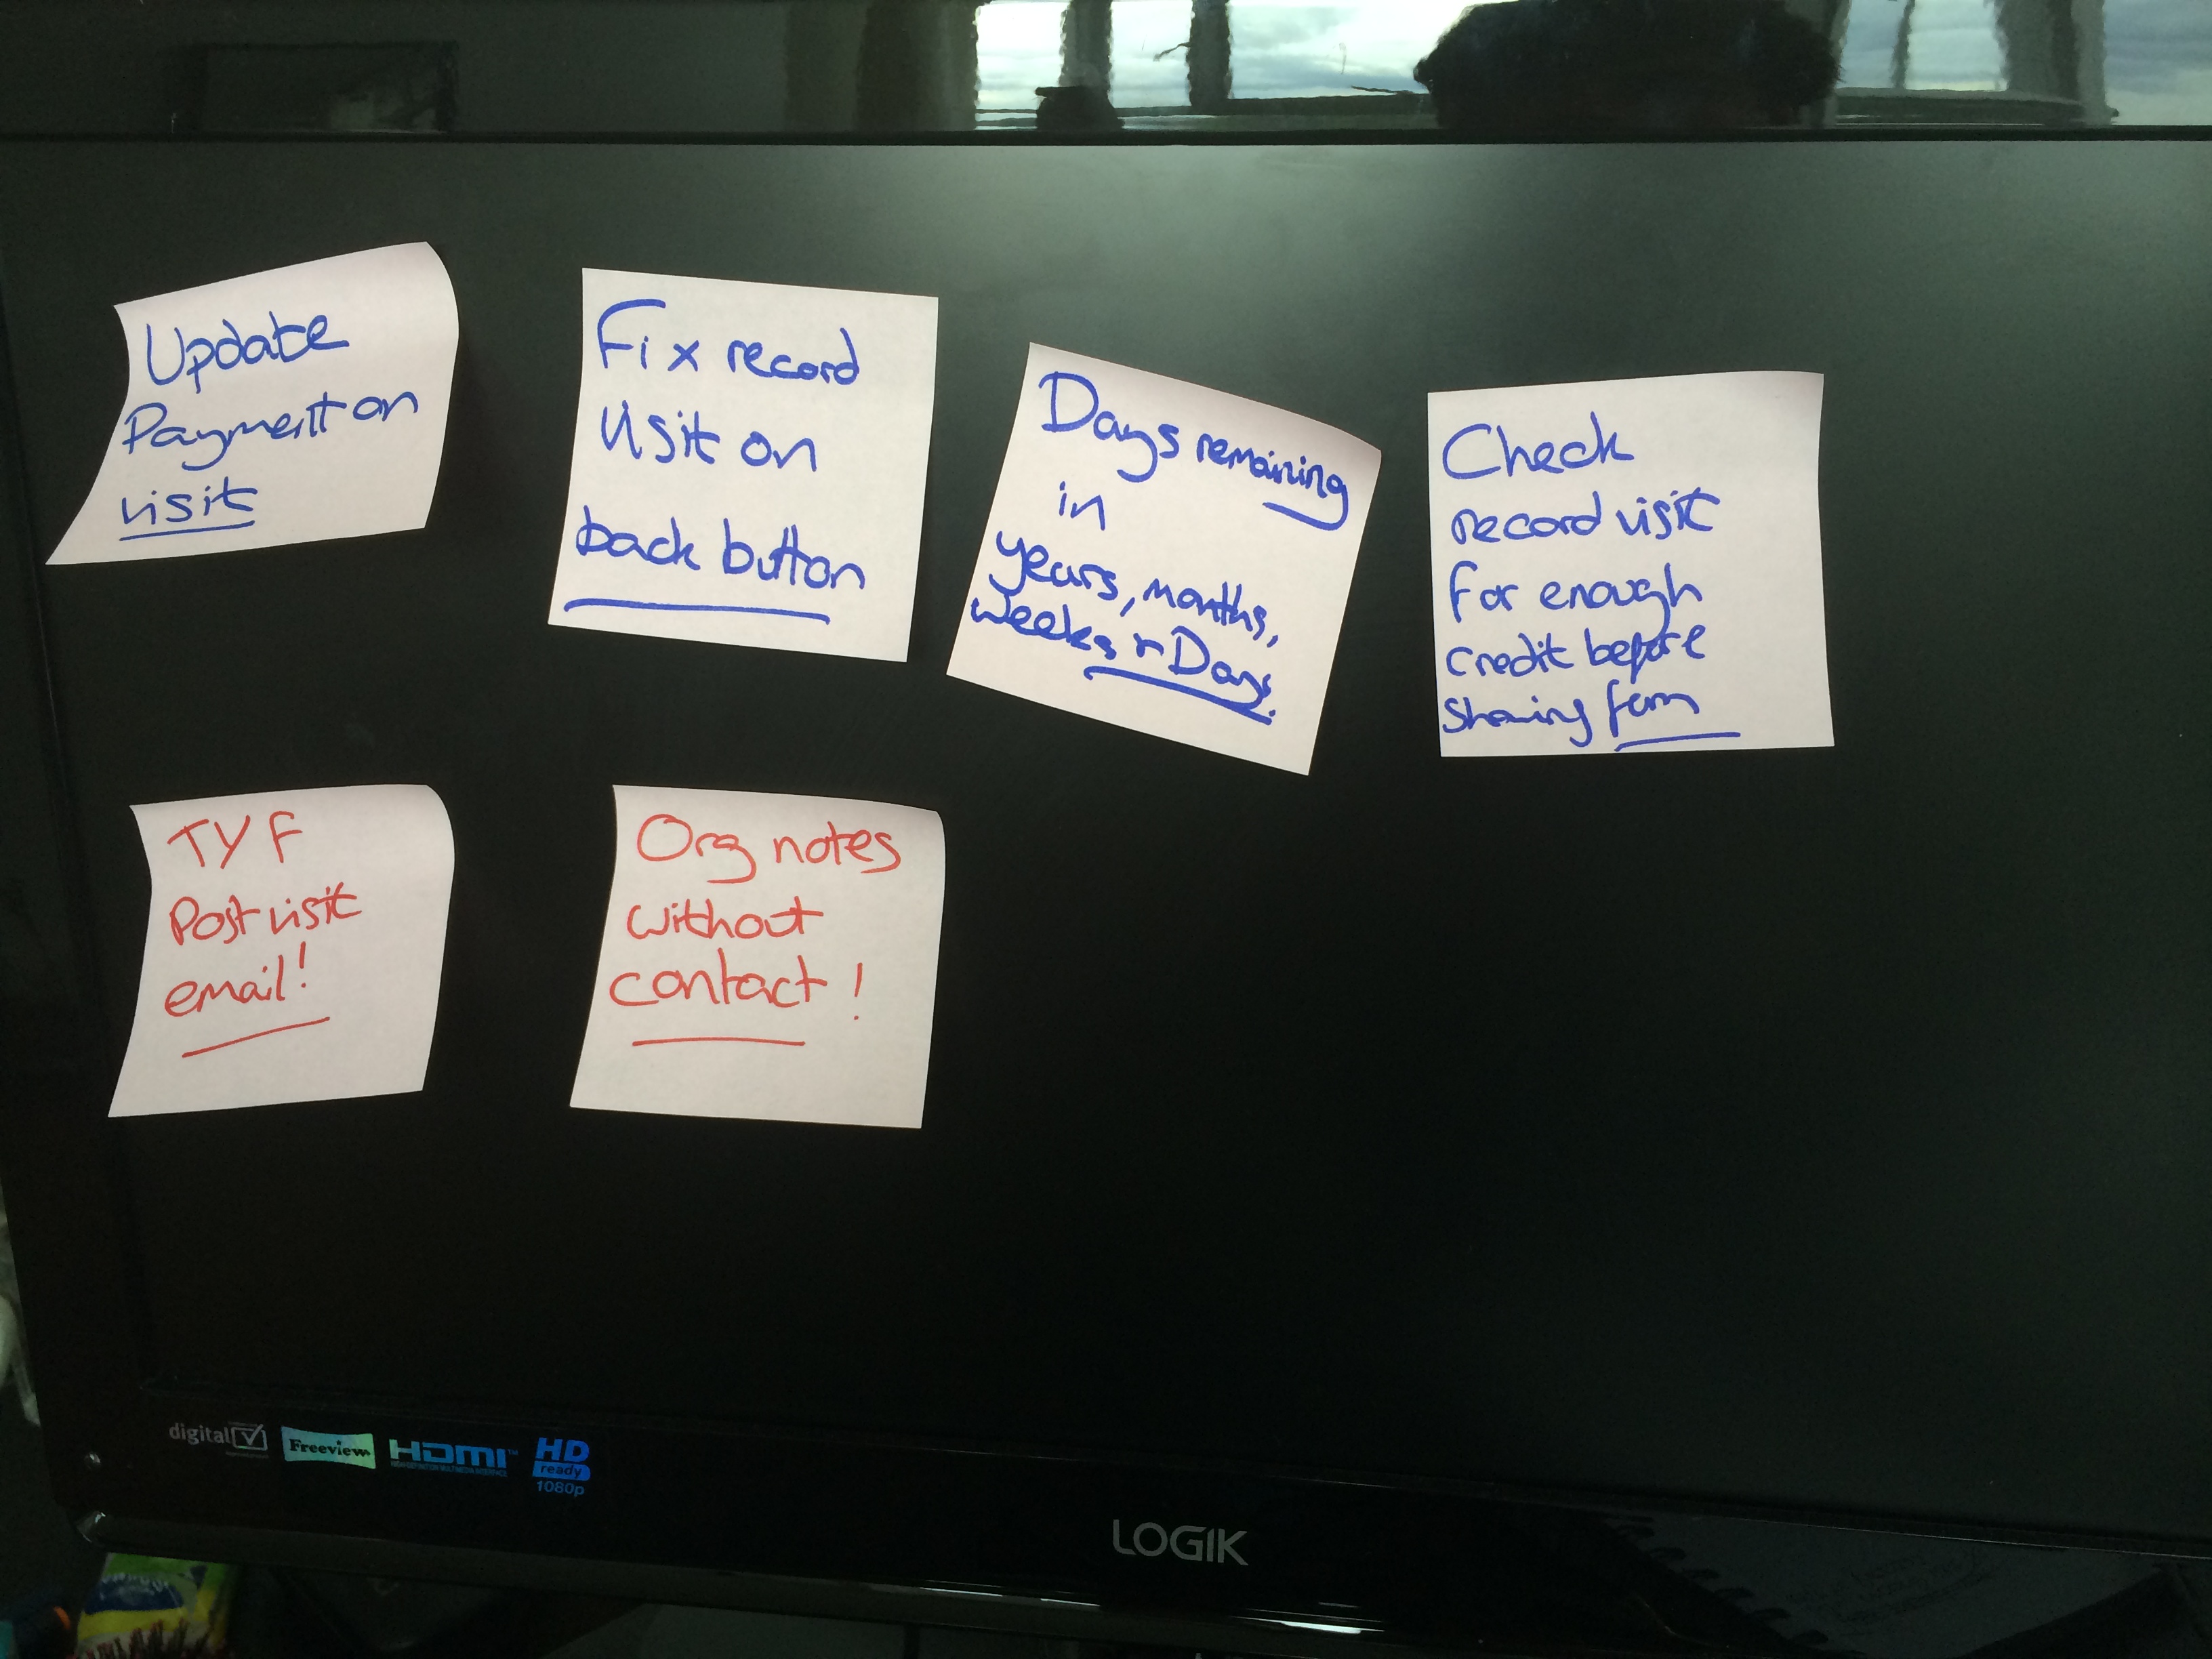 Update
Payment on
visit
Fix record
visit on
back button
Days remaining
in
years, months,
weeks + Days.
Check
record visit
for enough
credit before
showing form
TYF
Post visit
email!
Org notes
without
contact!
digital
Freeview
HDMI™
HIGH-DEFINITION MULTIMEDIA INTERFACE
HD
ready
1080p
LOGIK